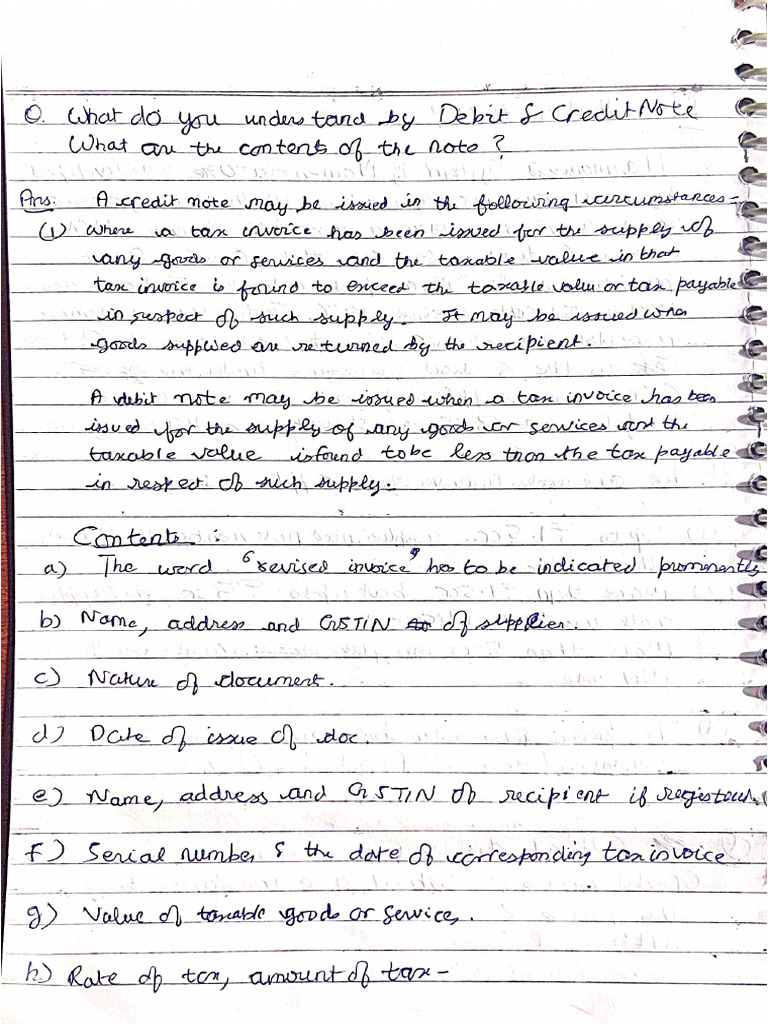 Q. What do you understand by Debit & Credit Note
What are the contents of the note?
Ans. A credit note may be issued in the following circumstances-
(1) where a tax invoice has been issued for the supply of
any goods or services and the taxable value in that
tax invoice is found to exceed the taxable value or tax payable
in respect of such supply. It may be issued when
goods supplied are returned by the recipient.
A debit note may be issued when a tax invoice has been
issued for the supply of any goods or services and the
taxable value is found to be less than the tax payable
in respect of such supply.
Contents :
a) The word "revised invoice" has to be indicated prominently
b) Name, address and GSTIN of supplier.
c) Nature of document.
d) Date of issue of doc.
e) Name, address and GSTIN of recipient if registered.
f) Serial number & the date of corresponding tax invoice
g) Value of taxable goods or services.
h) Rate of tax, amount of tax-